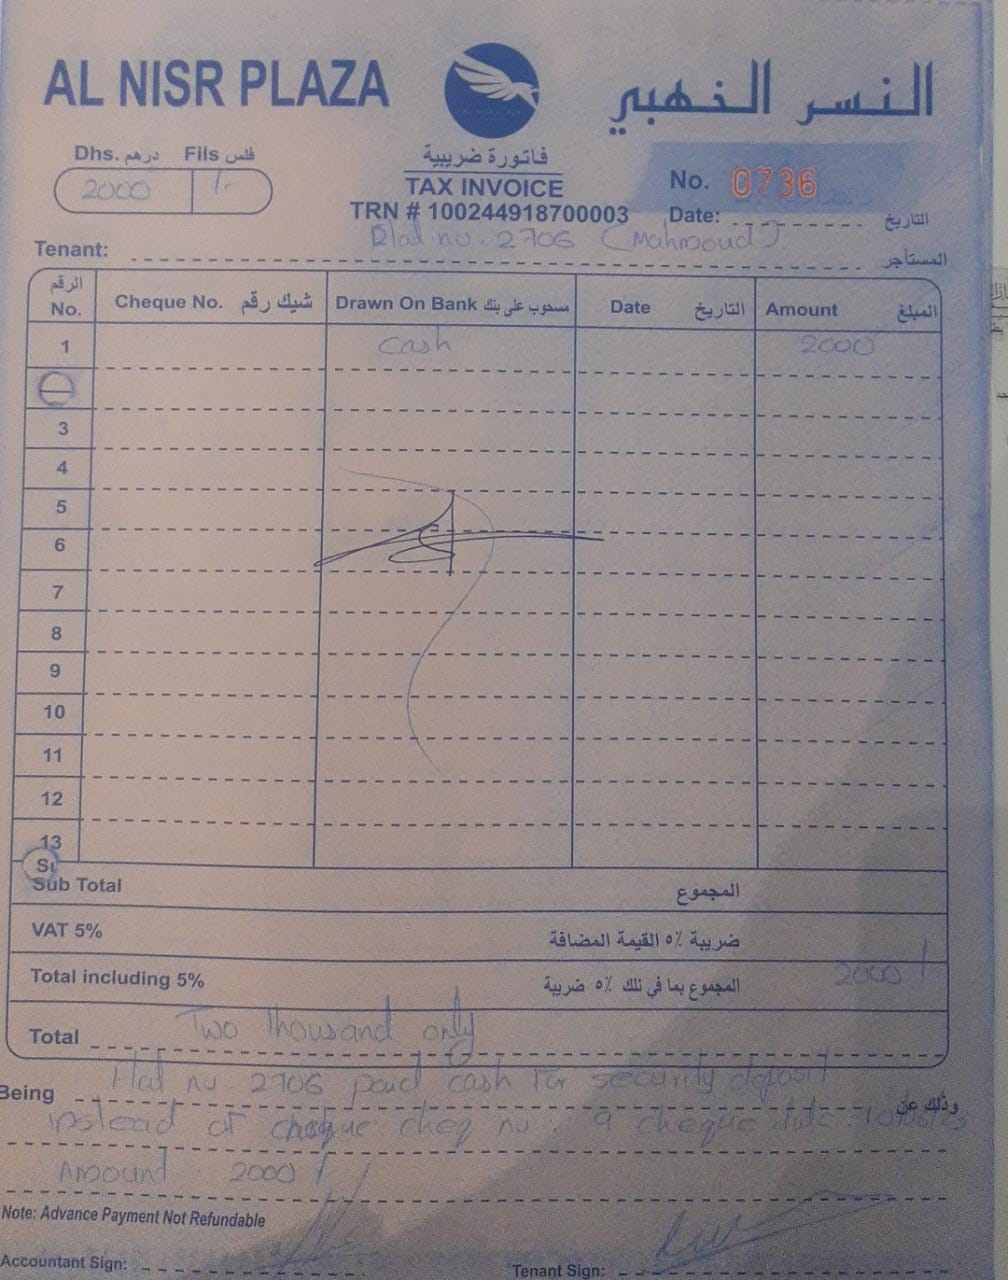 AL NISR PLAZA
النسر الذهبي
Dhs. درهم Fils فلس
2000 /-
فاتورة ضريبية
TAX INVOICE
TRN # 100244918700003
No. 0736
Date: التاريخ
Tenant: Flat no. 2706 (Mahmoud) المستأجر
الرقم No. Cheque No. شيك رقم Drawn On Bank مسحوب على بنك Date التاريخ Amount المبلغ
1 Cash 2000
3
4
5
6
7
8
9
10
11
12
13
Sub Total المجموع
VAT 5% ضريبة ٥% القيمة المضافة
Total including 5% المجموع بما في ذلك ٥% ضريبة 2000/
Total Two thousand only
Being Flat no 2706 paid cash for security deposit وذلك عن
instead of cheque cheq no. 9 cheque date
Amount 2000/
Note: Advance Payment Not Refundable
Accountant Sign: Tenant Sign: